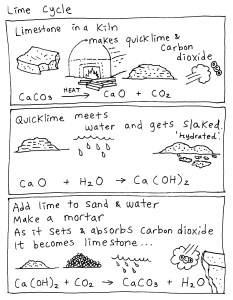 Lime Cycle
Limestone in a Kiln
makes quicklime &
Carbon
dioxide
HEAT
CaCO₃ → CaO + CO₂
Quicklime meets
water and gets slaked.
'Hydrated'.
CaO + H₂O → Ca(OH)₂
Add lime to sand & water
Make a mortar
As it sets & absorbs carbon dioxide
It becomes limestone...
Ca(OH)₂ + CO₂ → CaCO₃ + H₂O